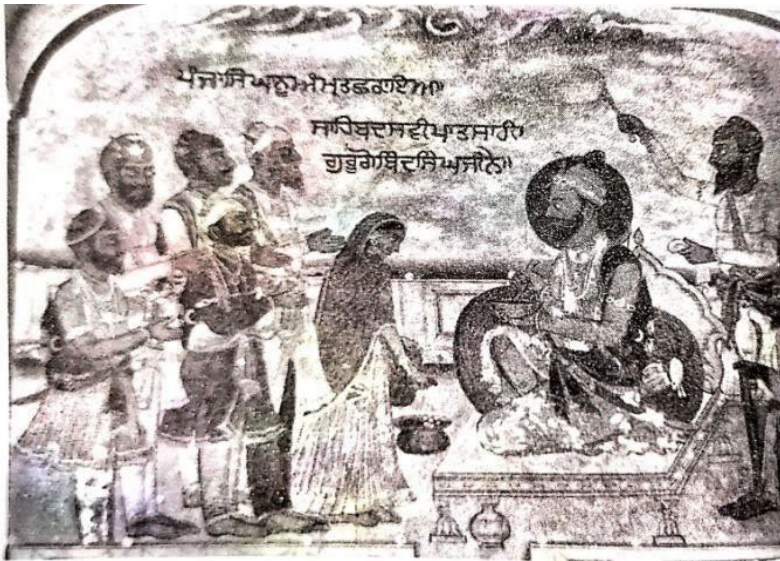 ਪੰਜਾਸਿੰਘਨੂਅੰਮ੍ਰਤਛਕਾਇਆ॥
ਸਾਹਿਬਦਸਵੀਪਾਤਸਾਹੀ॥
ਗੁਰੂਗੋਬਿੰਦਸਿੰਘਜੀਨੇ॥